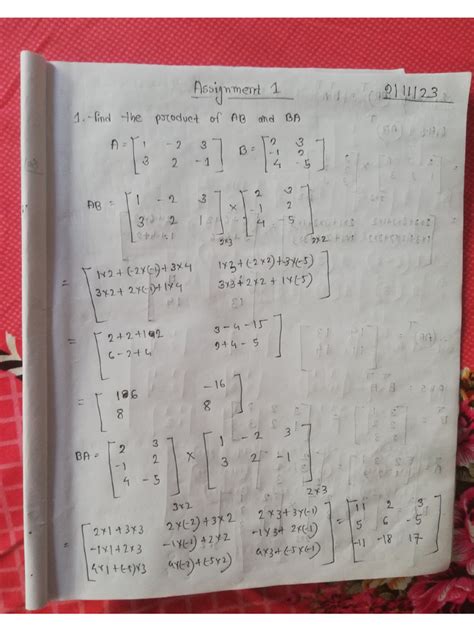 Assignment 1
2/11/23
1. Find the product of AB and BA
A = [1 -2 3 B = [2 3
3 2 -1] -1 2
4 -5]
AB = [1 -2 3 × [2 3
3 2 1] -1 2
4 -5]
2×3 2×2
= [1×2+(-2×(-1)+3×4 1×3+(-2×2)+3×(-5)
3×2+2×(-1)+1×4 3×3+2×2+1×(-5)]
= [2+2+12 3-4-15
6-2+4 9+4-5]
= [16 -16
8 8]
BA = [2 3 × [1 -2 3
-1 2 3 2 -1]
4 -5]
3×2 2×3
= [2×1+3×3 2×(-2)+3×2 2×3+3×(-1) = [11 2 3
-1×1+2×3 -1×(-2)+2×2 -1×3+2×(-1) 5 6 -5
4×1+(-5)×3 4×(-2)+(-5×2) 4×3+(-5×-1)] -11 -18 17]